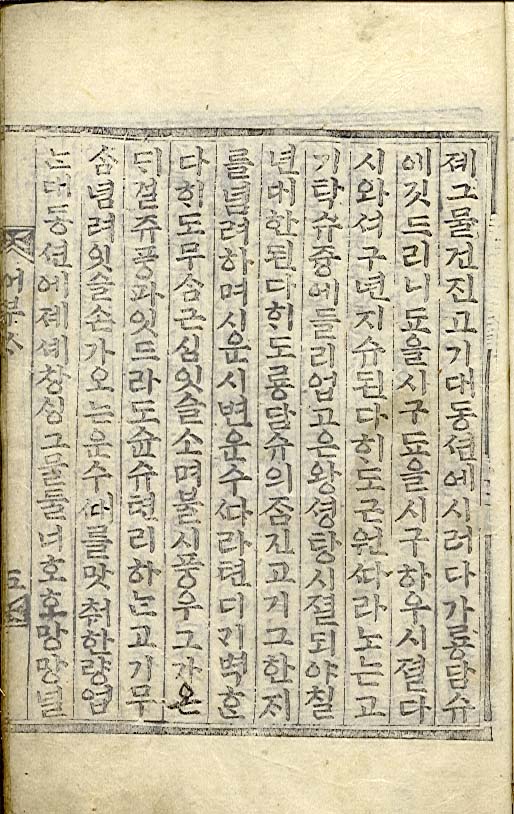 졔그물건진고기대동션에시러다가룡담슈
에깃드리니됴을시구됴을시구하우시졀다
시와셔구년지슈된다히도근원ᄯᅡ라노는고
기탁슈즁에들리업고은왕셩탕시졀되야칠
년대한된다히도룡담슈의줌긴고기그한지
를념려하며시운시변운수ᄯᅡ라텬디ᄀᆡ벽혼
다히도무숨근심잇슬소며불시풍우그가온
듸졈쥬풍파잇드라도슌슈텬리하는고기무
숨념려잇슬손가오는운수ᄯᅢ를맛취한량업
는대동션에졔셰창싱그물들녀호호망망널
어부ᄉᆞ
五